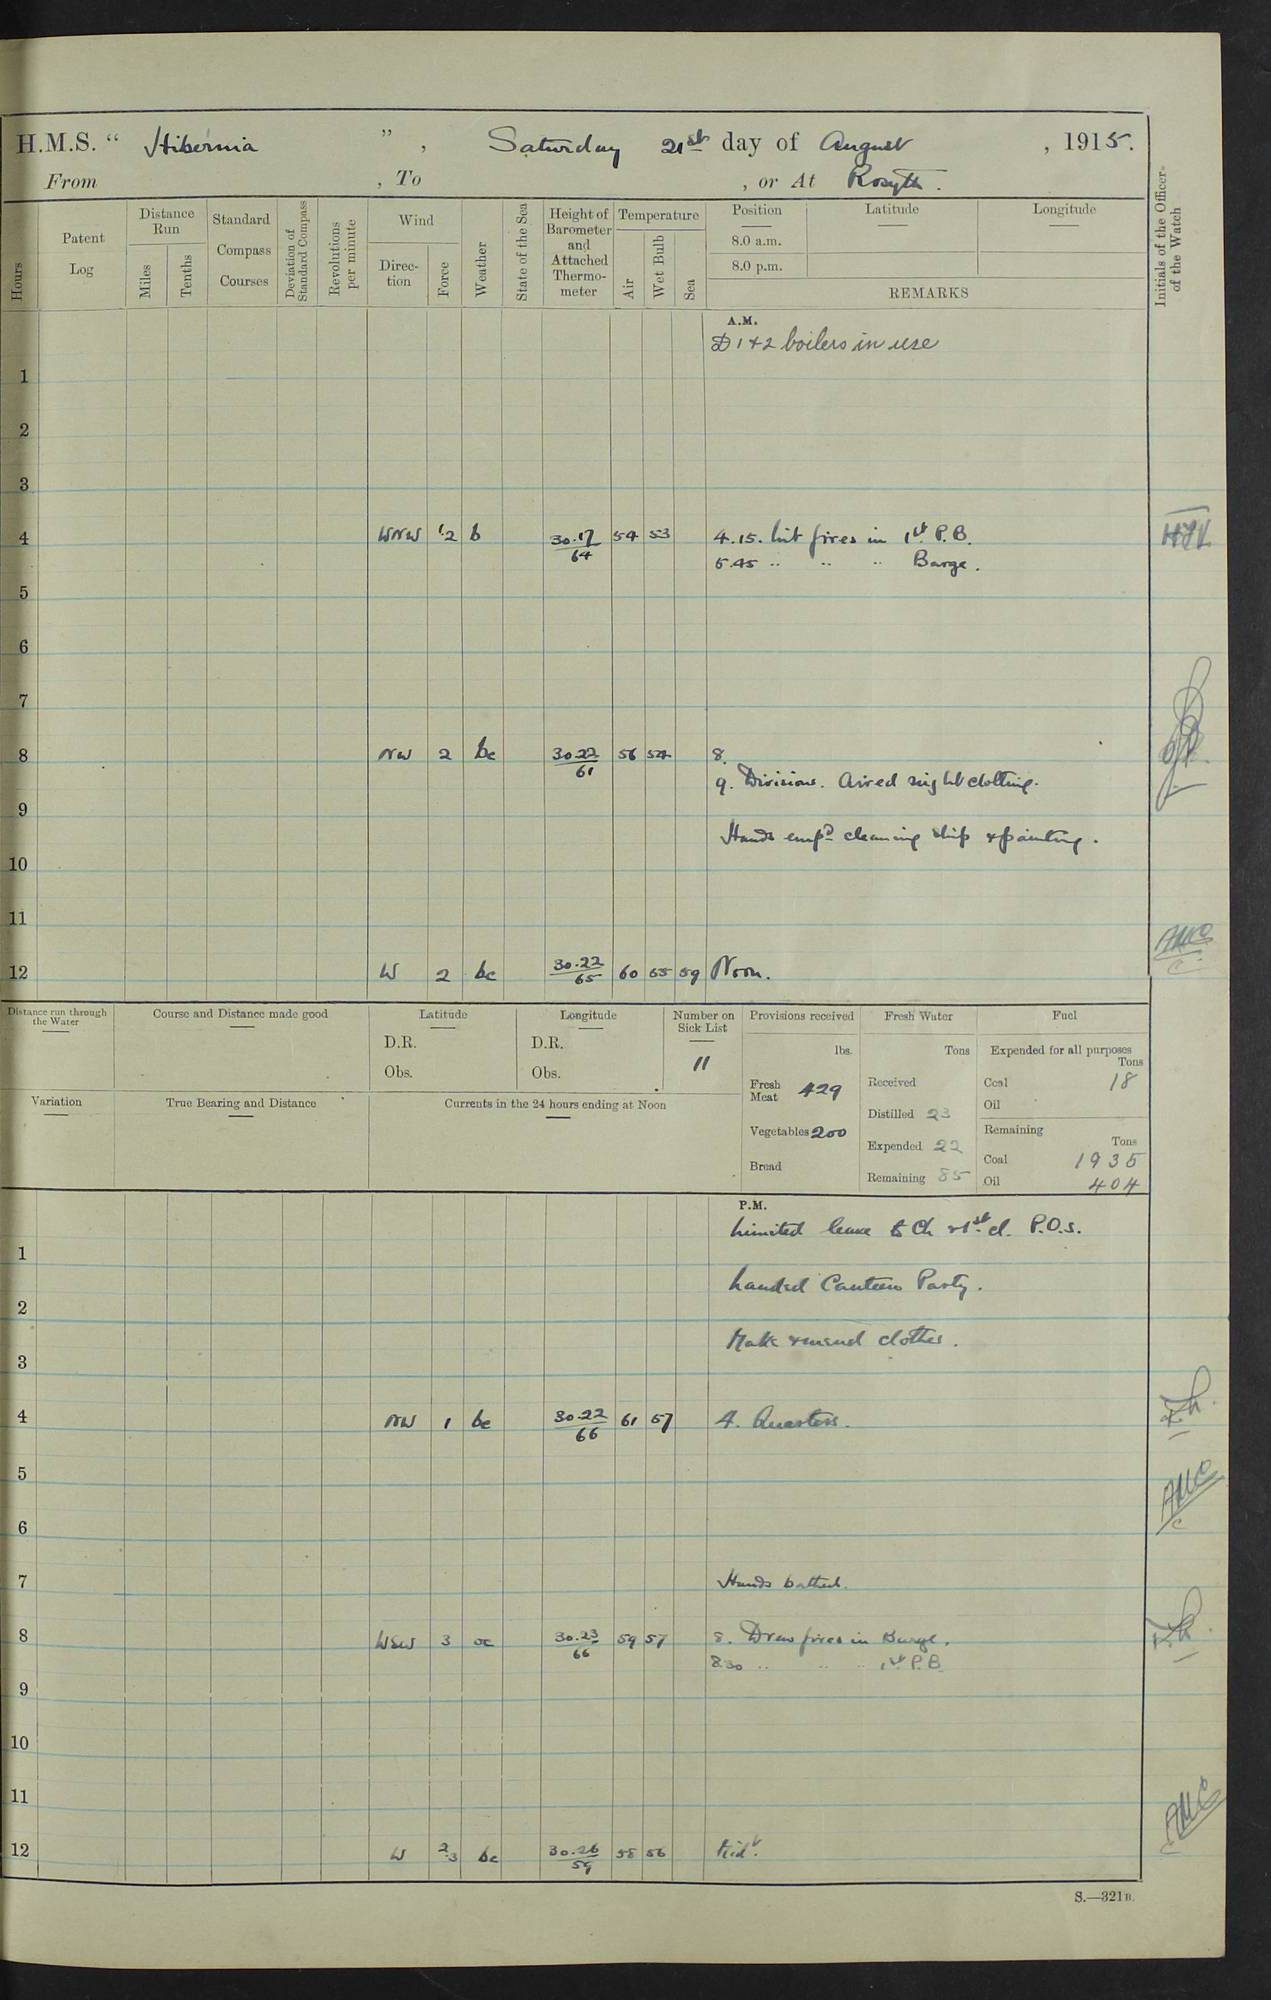 H.M.S. " Hibernia ", Saturday 21st day of August, 1915.
From , To , or At Rosyth.
Hours
Patent Log
Distance Run
Miles
Tenths
Standard Compass Courses
Deviation of Standard Compass
Revolutions per minute
Wind
Direction
Force
Weather
State of the Sea
Height of Barometer and Attached Thermometer
Temperature
Air
Wet Bulb
Sea
Position
8.0 a.m.
8.0 p.m.
Latitude
Longitude
REMARKS
Initials of the Officer of the Watch
A.M.
D 1 & 2 boilers in use
1
2
3
4 WNW 1·2 b 30.17/64 54 53 4.15. Lit fires in 1st P.B.
5.45 " " " Barge.
5
6
7
8 NW 2 bc 30.22/61 56 54 8.
9. Divisions. Aired night clothing.
9
Hands empd cleaning ship & painting.
10
11
AMC
12 W 2 bc 30.22/65 60 55 59 Noon.
Distance run through the Water
Course and Distance made good
Latitude
D.R.
Obs.
Longitude
D.R.
Obs.
Number on Sick List
11
Provisions received
lbs.
Fresh Meat 429
Vegetables 200
Bread
Fresh Water
Tons
Received
Distilled 23
Expended 22
Remaining 85
Fuel
Expended for all purposes
Tons
Coal 18
Oil
Remaining
Tons
Coal 1935
Oil 404
Variation
True Bearing and Distance
Currents in the 24 hours ending at Noon
P.M.
Limited leave to Ch & 1st cl. P.O.s.
1
Landed Canteen Party.
2
Make & mend clothes.
3
4 NW 1 bc 30.22/66 61 57 4. Quarters.
5
AMC
6
7 Hands bathed.
8 WSW 3 oc 30.23/66 59 57 8. Drew fires in Barge.
8.30 " " " 1st P.B.
9
10
11
AMC
12 W 2.3 bc 30.26/59 58 56 Midt.
S.—321B.